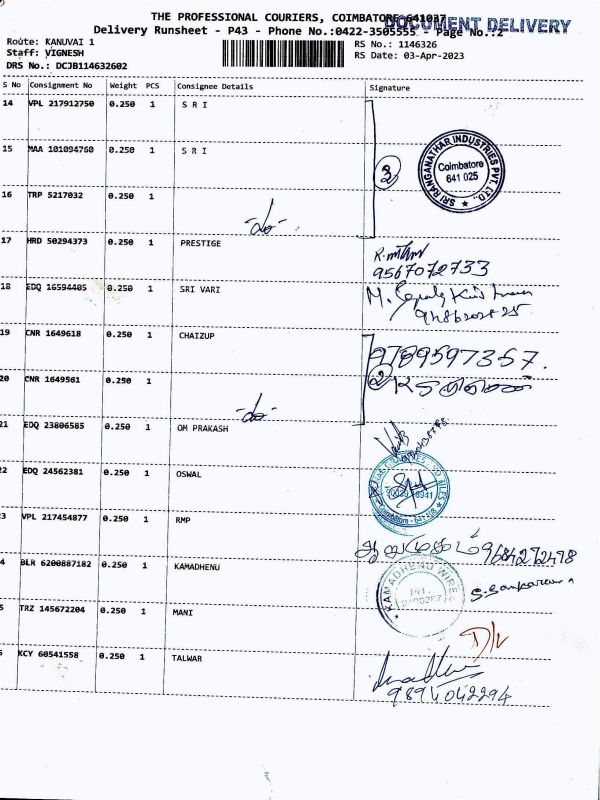 THE PROFESSIONAL COURIERS, COIMBATORE 641037
DOCUMENT DELIVERY
Delivery Runsheet - P43 - Phone No.:0422-3505555 - Page No.:2
Route: KANUVAI 1
RS No.: 1146326
Staff: VIGNESH
RS Date: 03-Apr-2023
DRS No.: DCJB114632602
S No Consignment No Weight PCS Consignee Details Signature
14 VPL 217912750 0.250 1 S R I
15 MAA 101094760 0.250 1 S R I
3
SRI RANGANATHAR INDUSTRIES PVT. LTD.,
Coimbatore
641 025
16 TRP 5217032 0.250 1
-do-
17 HRD 50294373 0.250 1 PRESTIGE
9567072733
18 EDQ 16594405 0.250 1 SRI VARI
19 CNR 1649618 0.250 1 CHAIZUP
9789597357.
20 CNR 1649561 0.250 1
2
-do-
21 EDQ 23806585 0.250 1 OM PRAKASH
22 EDQ 24562381 0.250 1 OSWAL
3 VPL 217454877 0.250 1 RMP
4 BLR 6200887182 0.250 1 KAMADHENU
KAMADHENU WIRES
PH:
5 TRZ 145672204 0.250 1 MANI
D/L
KCY 60541558 0.250 1 TALWAR
9894042294